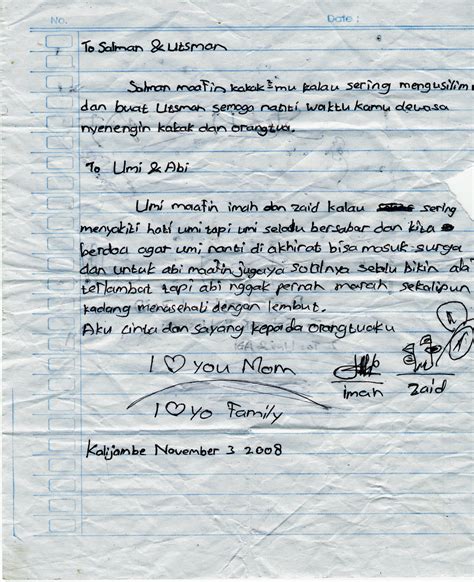 No.
Date :
To Salman & Utsman
Salman maafin kakak²mu kalau sering mengusilim
dan buat Utsman semoga nanti waktu kamu dewasa
nyenengin kakak dan orangtua.
To Umi & Abi
Umi maafin imah dan zaid kalau sering
menyakiti hati umi tapi umi selalu bersabar dan kita
berdoa agar umi nanti di akhirat bisa masuk surga
dan untuk abi maafin jugaya soalnya selalu bikin abi
terlambat tapi abi nggak pernah marah sekalipun
kadang menasehati dengan lembut.
Aku cinta dan sayang kepada orangtuaku
I ♡ you Mom
imah zaid
I ♡ yo Family
Kalijambe November 3 2008